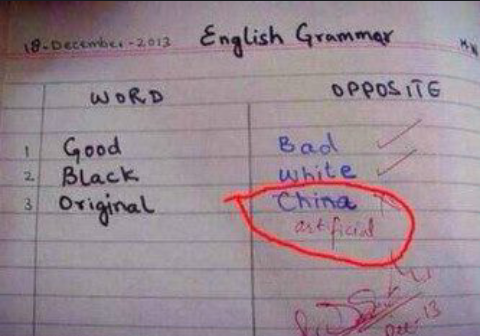 18-December-2013 English Grammar
WORD OPPOSITE
1 Good Bad
2 Black White
3 Original China
artificial
Dec-13